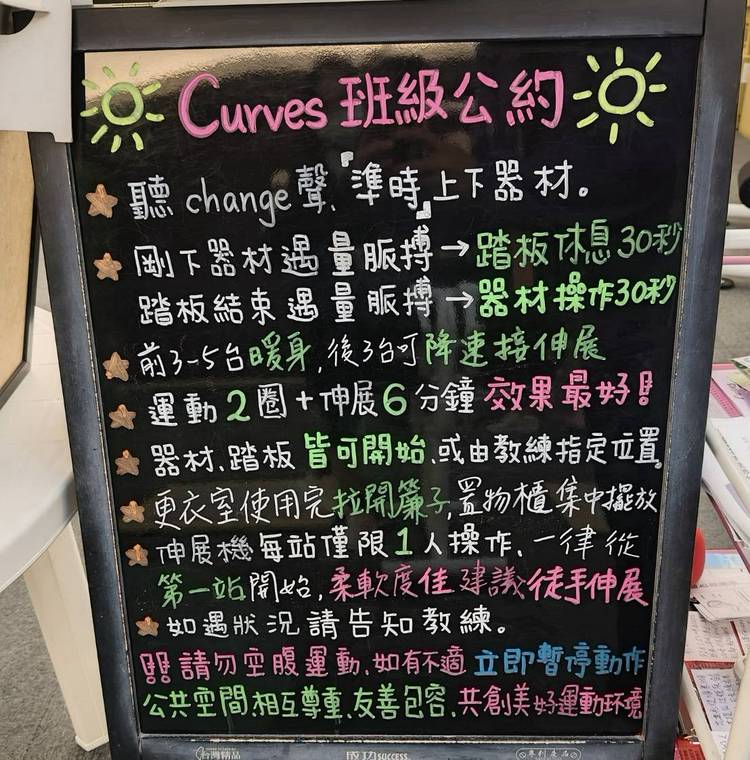 Curves 班級公約
聽 change 聲、「準時」上下器材。
剛下器材遇量脈搏→踏板休息30秒
踏板結束遇量脈搏→器材操作30秒
前3~5台暖身,後3台可降速接伸展
運動2圈+伸展6分鐘 效果最好!!
器材、踏板 皆可開始、或由教練指定位置。
更衣室使用完拉開簾子,置物櫃集中擺放
伸展機每站僅限1人操作、一律從
第一站開始,柔軟度佳建議徒手伸展
如遇狀況請告知教練。
!!請勿空腹運動、如有不適 立即暫停動作
公共空間、相互尊重、友善包容、共創美好運動環境
台灣精品
成功 SUCCESS
專利產品